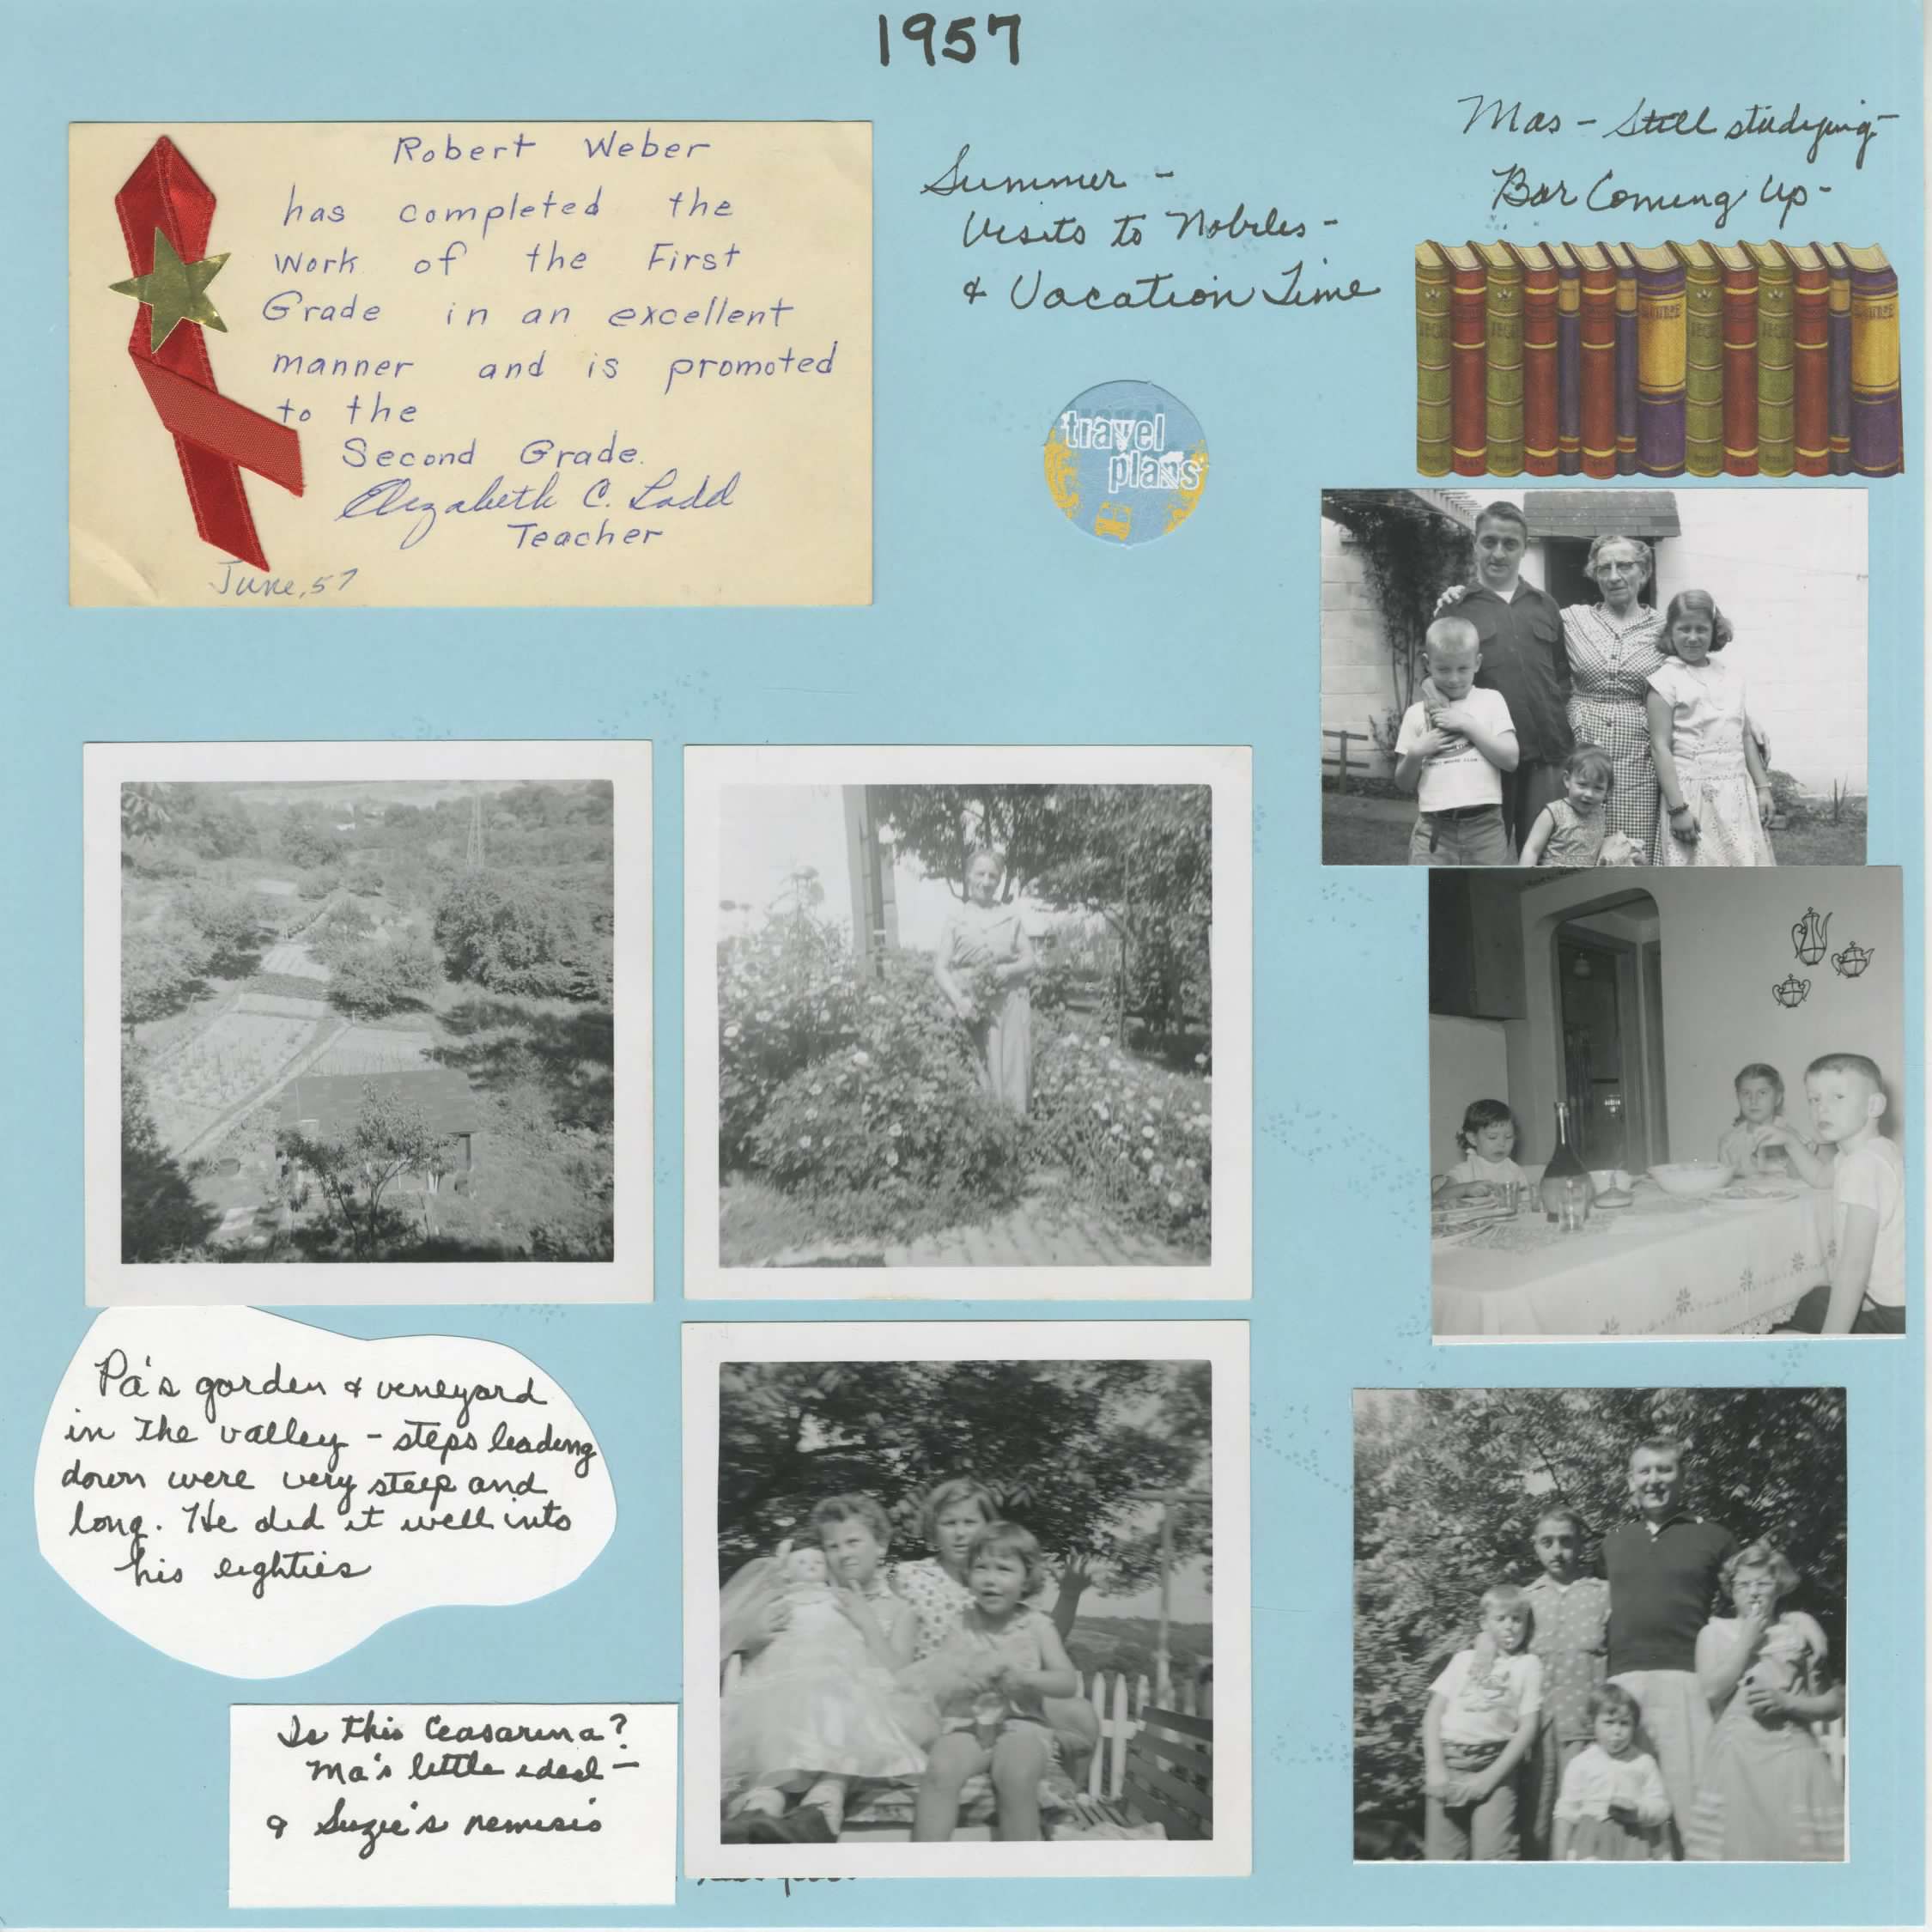 1957
Robert Weber
has completed the
Work of the First
Grade in an excellent
manner and is promoted
to the
Second Grade.
Elizabeth C. Ladd
Teacher
June, 57
Summer -
Visits to Nobiles -
& Vacation Time
travel
plans
Mas - Still studying -
Bar Coming Up -
Pa's garden & veneyard
in the valley - steps leading
down were very steep and
long. He did it well into
his eighties
Is this Ceasarina?
Ma's little ideal -
& Suzie's nemesis